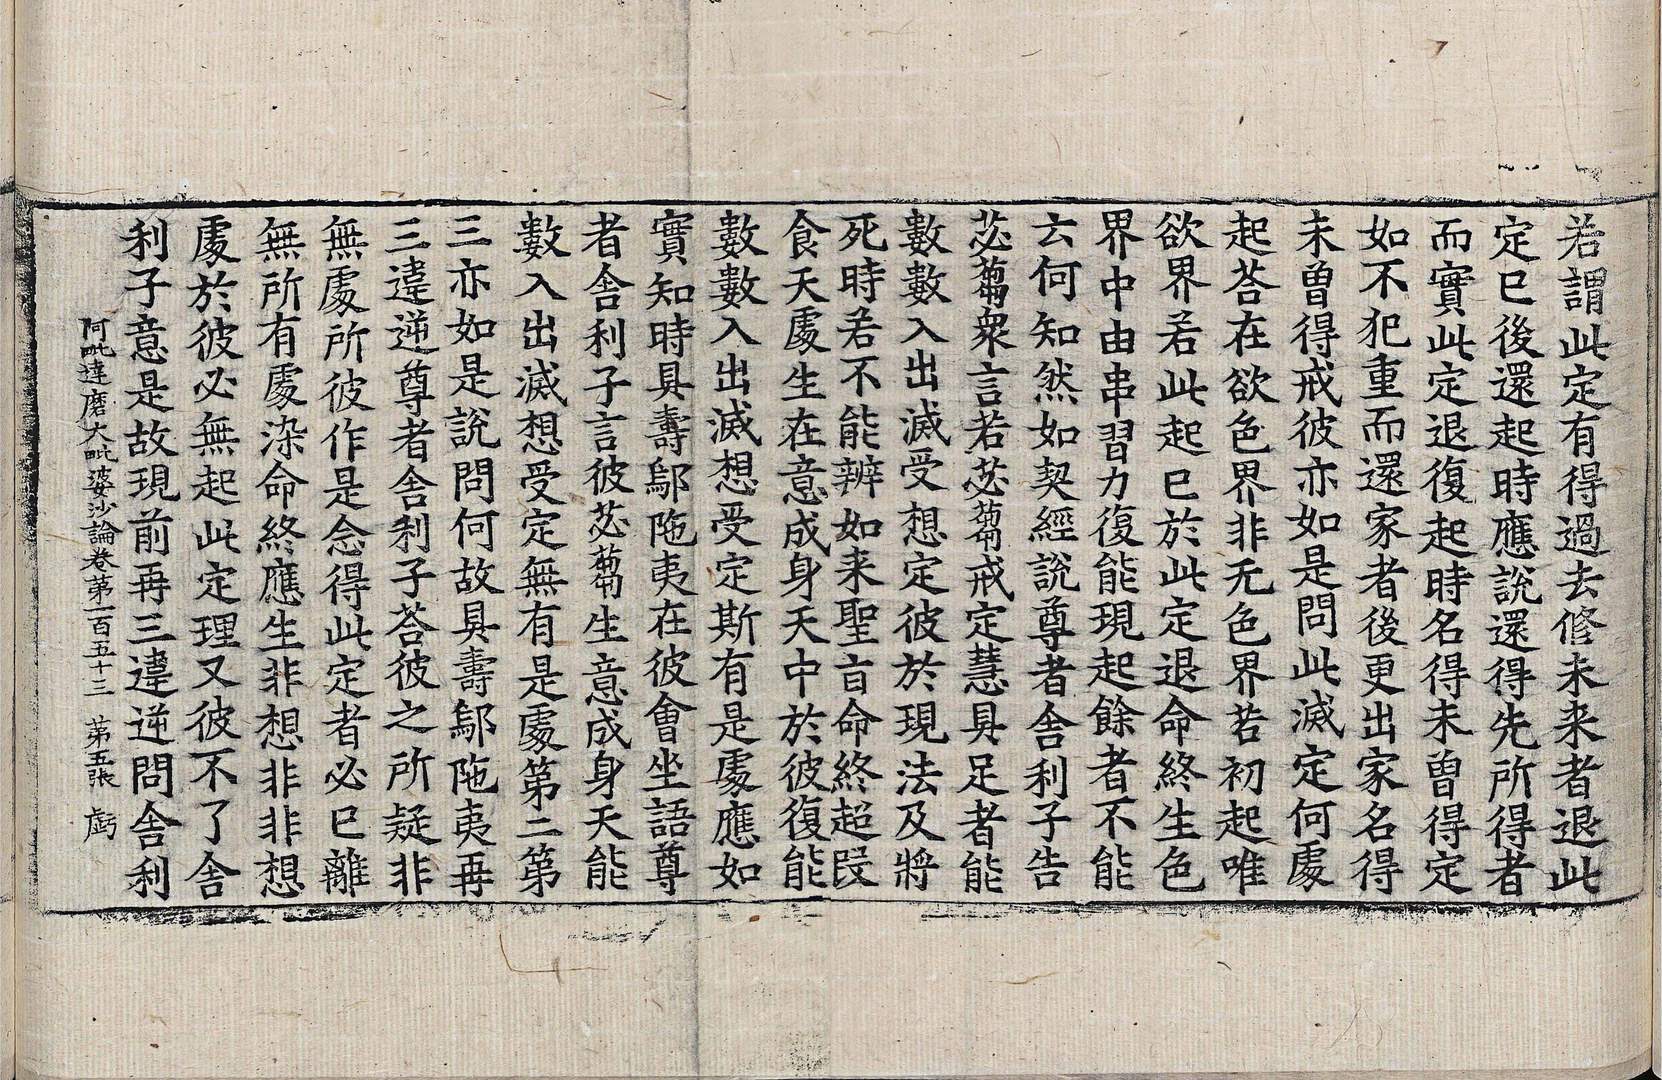 若謂此定有得過去修未来者退此
定已後還起時應說還得先所得者
而實此定退復起時名得未曾得定
如不犯重而還家者後更出家名得
未曾得戒彼亦如是問此滅定何處
起荅在欲色界非无色界若初起唯
欲界若此起已於此定退命終生色
界中由串習力復能現起餘者不能
云何知然如契經說尊者舎利子告
苾蒭衆言若苾蒭戒定慧具足者能
數數入出滅受想定彼於現法及將
死時若不能辨如来聖旨命終超段
食天處生在意成身天中於彼復能
數數入出滅想受定斯有是處應如
實知時具壽鄔陁夷在彼會坐語尊
者舎利子言彼苾蒭生意成身天能
數入出滅想受定無有是處第二第
三亦如是說問何故具壽鄔陁夷再
三違逆尊者舎利子荅彼之所疑非
無處所彼作是念得此定者必已離
無所有處染命終應生非想非非想
處於彼必無起此定理又彼不了舎
利子意是故現前再三違逆問舎利
阿毗達磨大毗婆沙論卷第一百五十三　第五張　虧